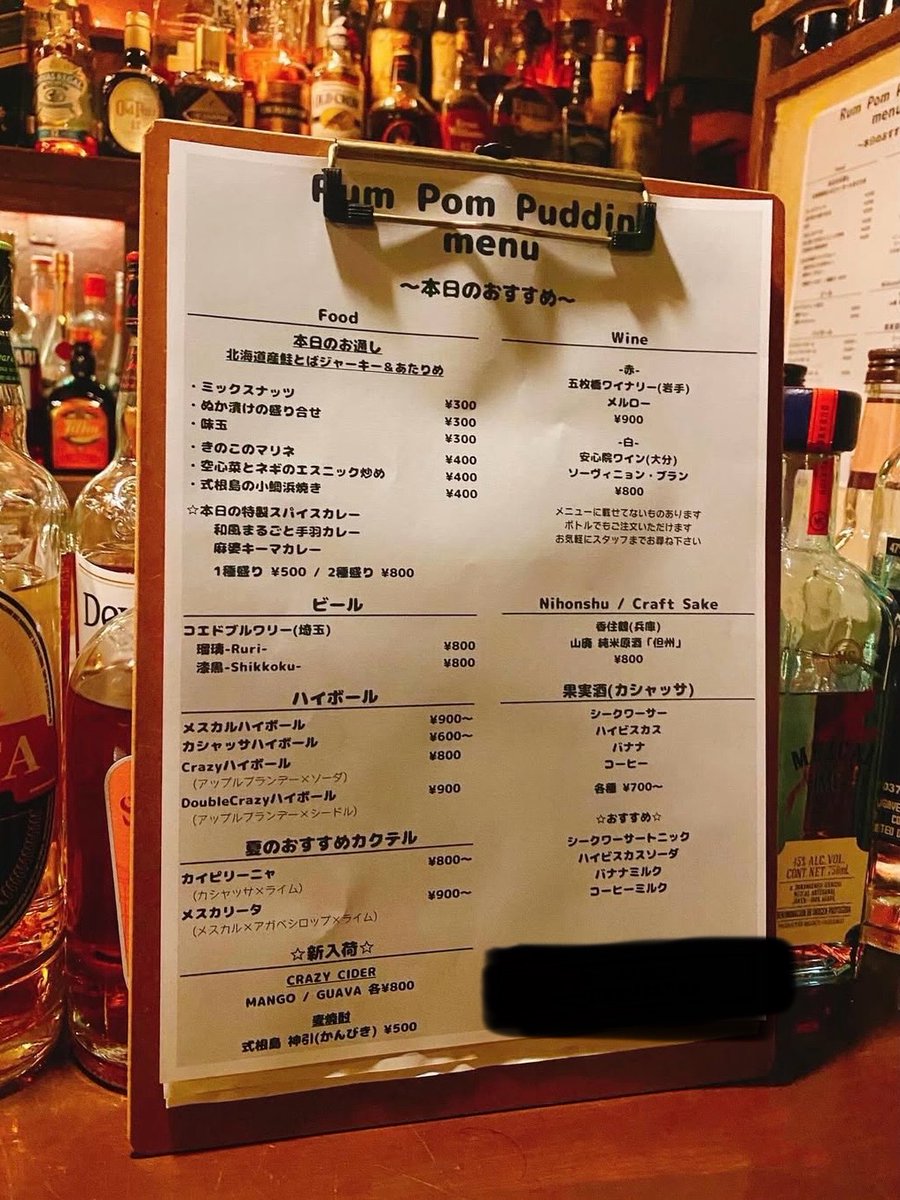 Rum Pom Puddin
menu
〜本日のおすすめ〜
Food
本日のお通し
北海道産鮭とばジャーキー＆あたりめ
・ミックスナッツ ¥300
・ぬか漬けの盛り合せ ¥300
・味玉 ¥300
・きのこのマリネ ¥400
・空心菜とネギのエスニック炒め ¥400
・式根島の小鯛浜焼き ¥400
☆本日の特製スパイスカレー
和風まるごと手羽カレー
麻婆キーマカレー
1種盛り ¥500 / 2種盛り ¥800
ビール
コエドブルワリー(埼玉)
瑠璃-Ruri- ¥800
漆黒-Shikkoku- ¥800
ハイボール
メスカルハイボール ¥900〜
カシャッサハイボール ¥600〜
Crazyハイボール ¥800
(アップルブランデー×ソーダ)
DoubleCrazyハイボール ¥900
(アップルブランデー×シードル)
夏のおすすめカクテル
カイピリーニャ ¥800〜
(カシャッサ×ライム)
メスカリータ ¥900〜
(メスカル×アガベシロップ×ライム)
☆新入荷☆
CRAZY CIDER
MANGO / GUAVA 各¥800
麦焼酎
式根島 神引(かんびき) ¥500
Wine
-赤-
五枚橋ワイナリー(岩手)
メルロー
¥900
-白-
安心院ワイン(大分)
ソーヴィニョン・ブラン
¥800
メニューに載せてないものあります
ボトルでもご注文いただけます
お気軽にスタッフまでお尋ね下さい
Nihonshu / Craft Sake
香住鶴(兵庫)
山廃 純米原酒「但州」
¥800
果実酒(カシャッサ)
シークワーサー
ハイビスカス
バナナ
コーヒー
各種 ¥700〜
☆おすすめ☆
シークワーサートニック
ハイビスカスソーダ
バナナミルク
コーヒーミルク
Rum Pom P
menu
45% ALC. VOL.
CONT NET 750mL